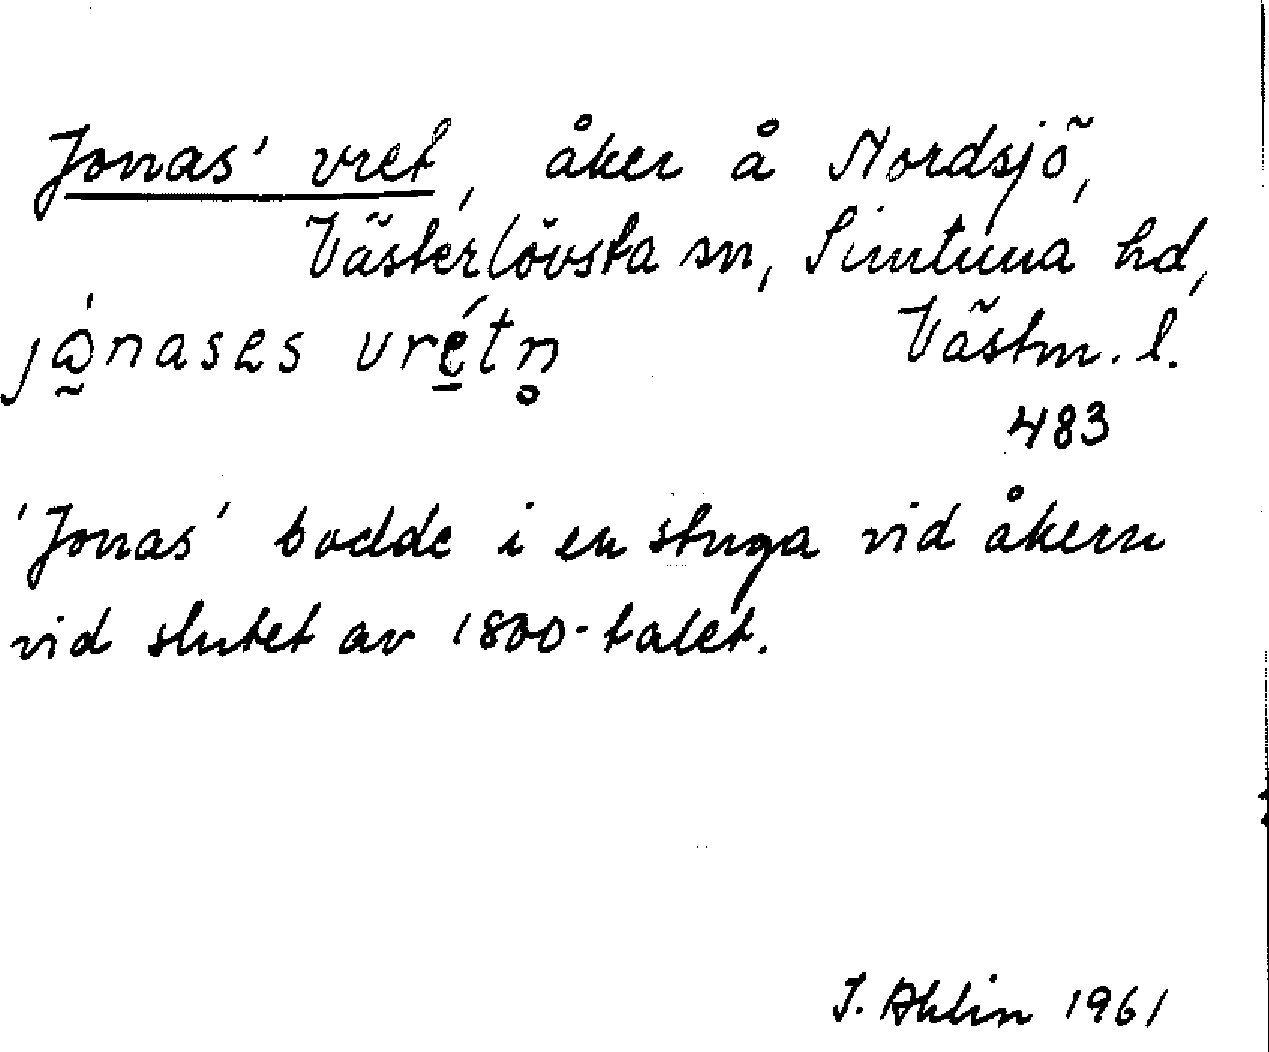 Jonas' vret, åker å Nordsjö,
Västerlövsta sn, Simtuna hd,
jånases vrétn̥
Västm. l.
483
'Jonas' bodde i en stuga vid åkern
vid slutet av 1800-talet.
I. Ahlin 1961